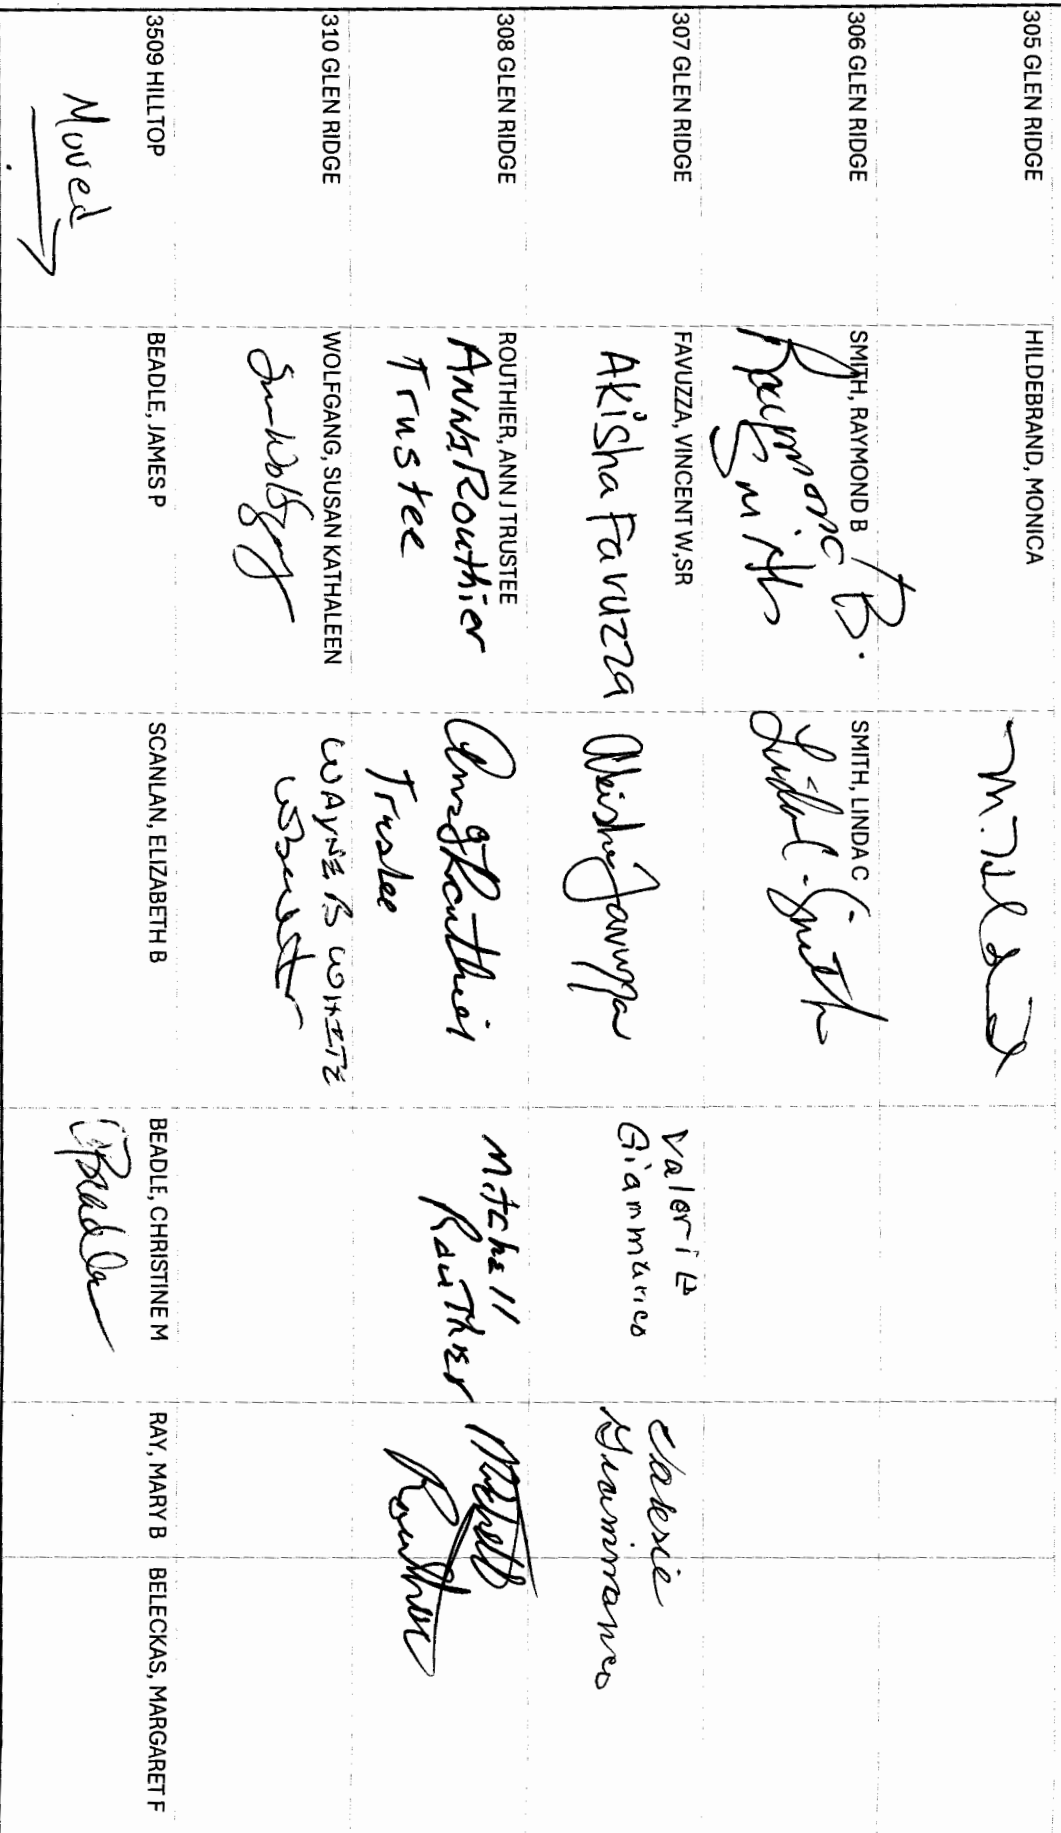 305 GLEN RIDGE
HILDEBRAND, MONICA
306 GLEN RIDGE
SMITH, RAYMOND B
SMITH, LINDA C
Raymond B.
Smith
Linda C. Smith
307 GLEN RIDGE
FAVUZZA, VINCENT W, SR
Akisha Favuzza
Akisha Favuzza
Valerie
Giammarco
Valerie
Giammanco
308 GLEN RIDGE
ROUTHIER, ANN J TRUSTEE
Ann J Routhier
Trustee
Ann J Routhier
Trustee
Mitchell
Routhier
Mitchell
Routhier
310 GLEN RIDGE
WOLFGANG, SUSAN KATHALEEN
Sue Wolfgang
WAYNE B WHITE
3509 HILLTOP
BEADLE, JAMES P
SCANLAN, ELIZABETH B
BEADLE, CHRISTINE M
RAY, MARY B
BELECKAS, MARGARET F
Moved
CBeadle